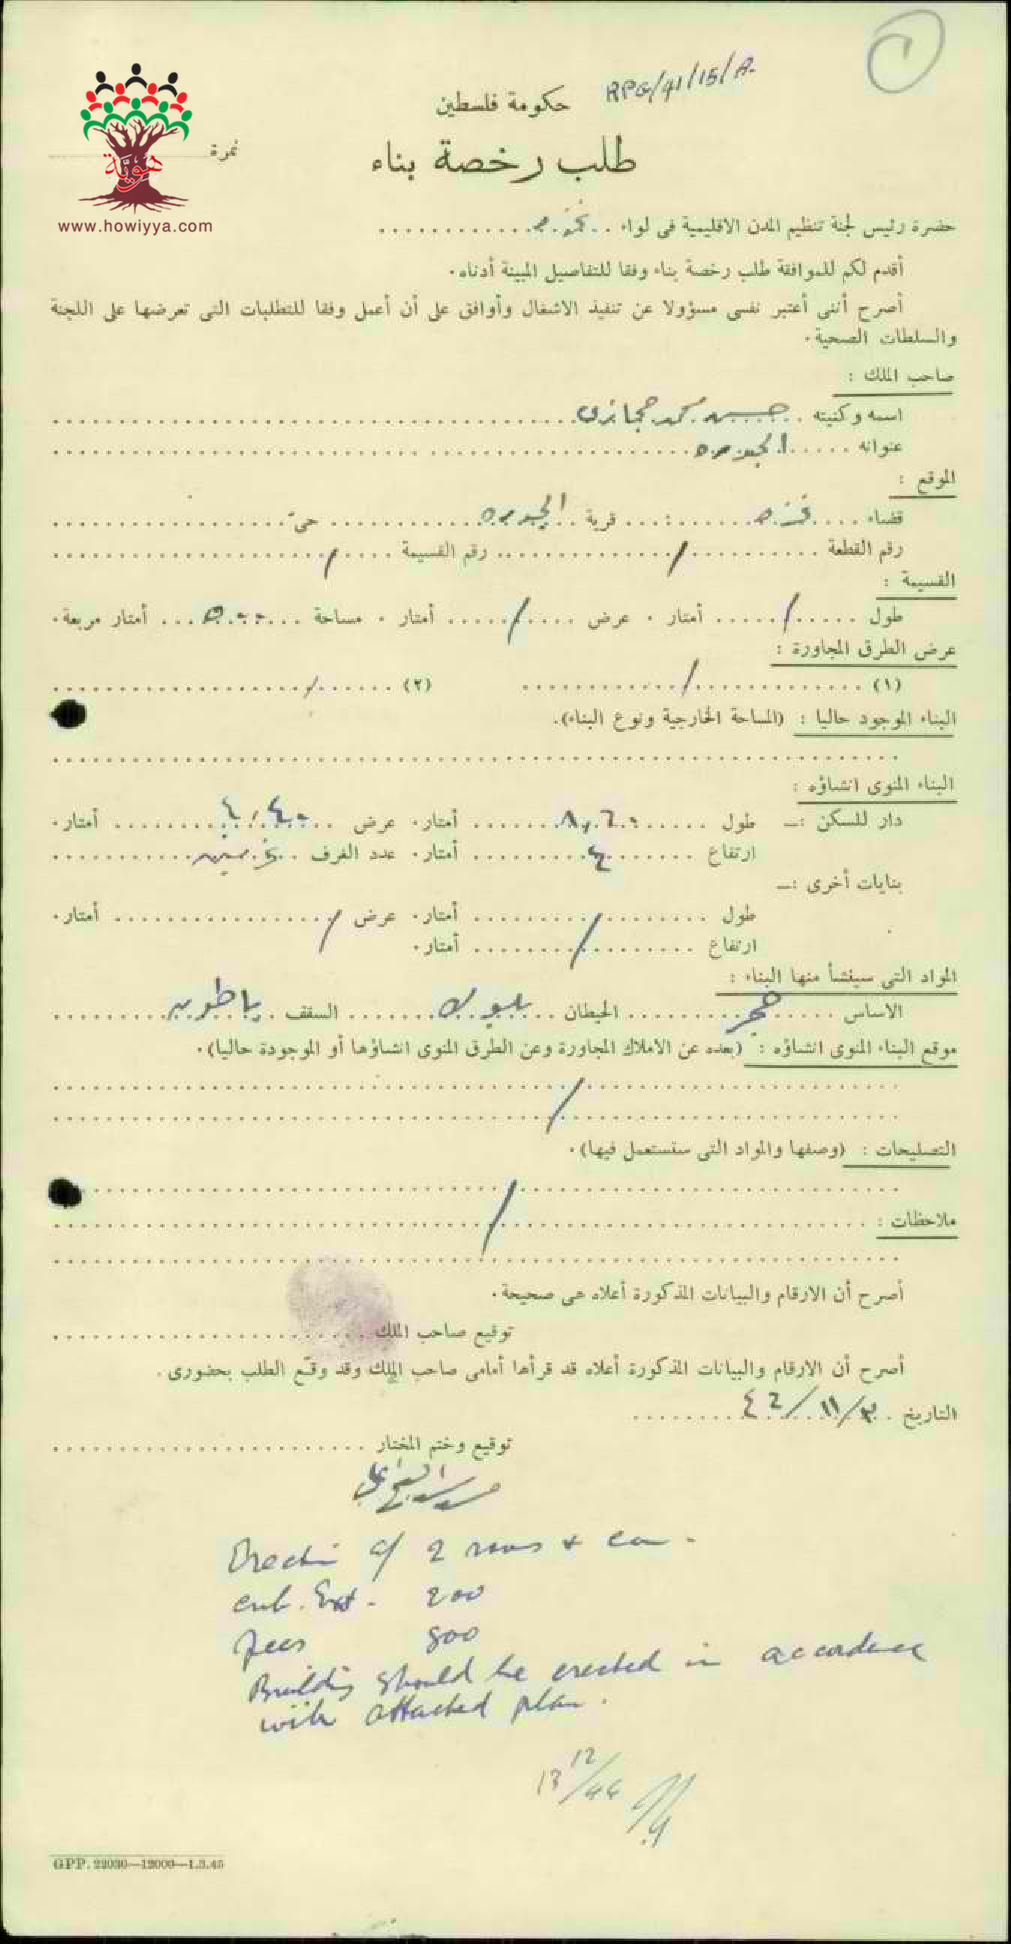 RPG/41/15/A.
حكومة فلسطين
هوية
www.howiyya.com
طلب رخصة بناء
نمرة
حضرة رئيس لجنة تنظيم المدن الاقليمية فى لواء غزه
أقدم لكم للموافقة طلب رخصة بناء وفقا للتفاصيل المبينة أدناه.
أصرح أنى أعتبر نفسى مسؤولا عن تنفيذ الاشغال وأوافق على أن أعمل وفقا للتطلبات التى تعرضها على اللجنة
والسلطات الصحية.
صاحب الملك :
اسمه وكنيته حسين محمد حجازى
عنوانه الجوره
الموقع :
قضاء غزه قرية الجوره حى
رقم القطعة / رقم القسيمة /
القسيمة :
طول / أمتار . عرض / أمتار . مساحة ٥٠٠ أمتار مربعة.
عرض الطرق المجاورة :
(١) / (٢) /
البناء الموجود حاليا : (المساحة الخارجية ونوع البناء).
البناء المنوى انشاؤه :
دار للسكن :— طول ٨,٦٠ أمتار. عرض ٤,٤٠ أمتار.
ارتفاع ٤ أمتار. عدد الغرف
بنايات أخرى :—
طول / أمتار. عرض / أمتار.
ارتفاع / أمتار.
المواد التى سينشأ منها البناء :
الاساس حجر الحيطان بلوك السقف باطون
موقع البناء المنوى انشاؤه : (بعده عن الاملاك المجاورة وعن الطرق المنوى انشاؤها أو الموجودة حاليا).
/
التصليحات : (وصفها والمواد التى ستستعمل فيها).
/
ملاحظات :
أصرح أن الارقام والبيانات المذكورة أعلاه هى صحيحة.
توقيع صاحب الملك
أصرح أن الارقام والبيانات المذكورة أعلاه قد قرأها أمامى صاحب الملك وقد وقّع الطلب بحضورى.
التاريخ ٤٦/١١/٣٠
توقيع وختم المختار
Erection of 2 rooms +
cub. Ext. 200
fees 500
Building should be erected in accordance
with attached plan.
13 12/46
GPP. 22030—12000—1.3.45